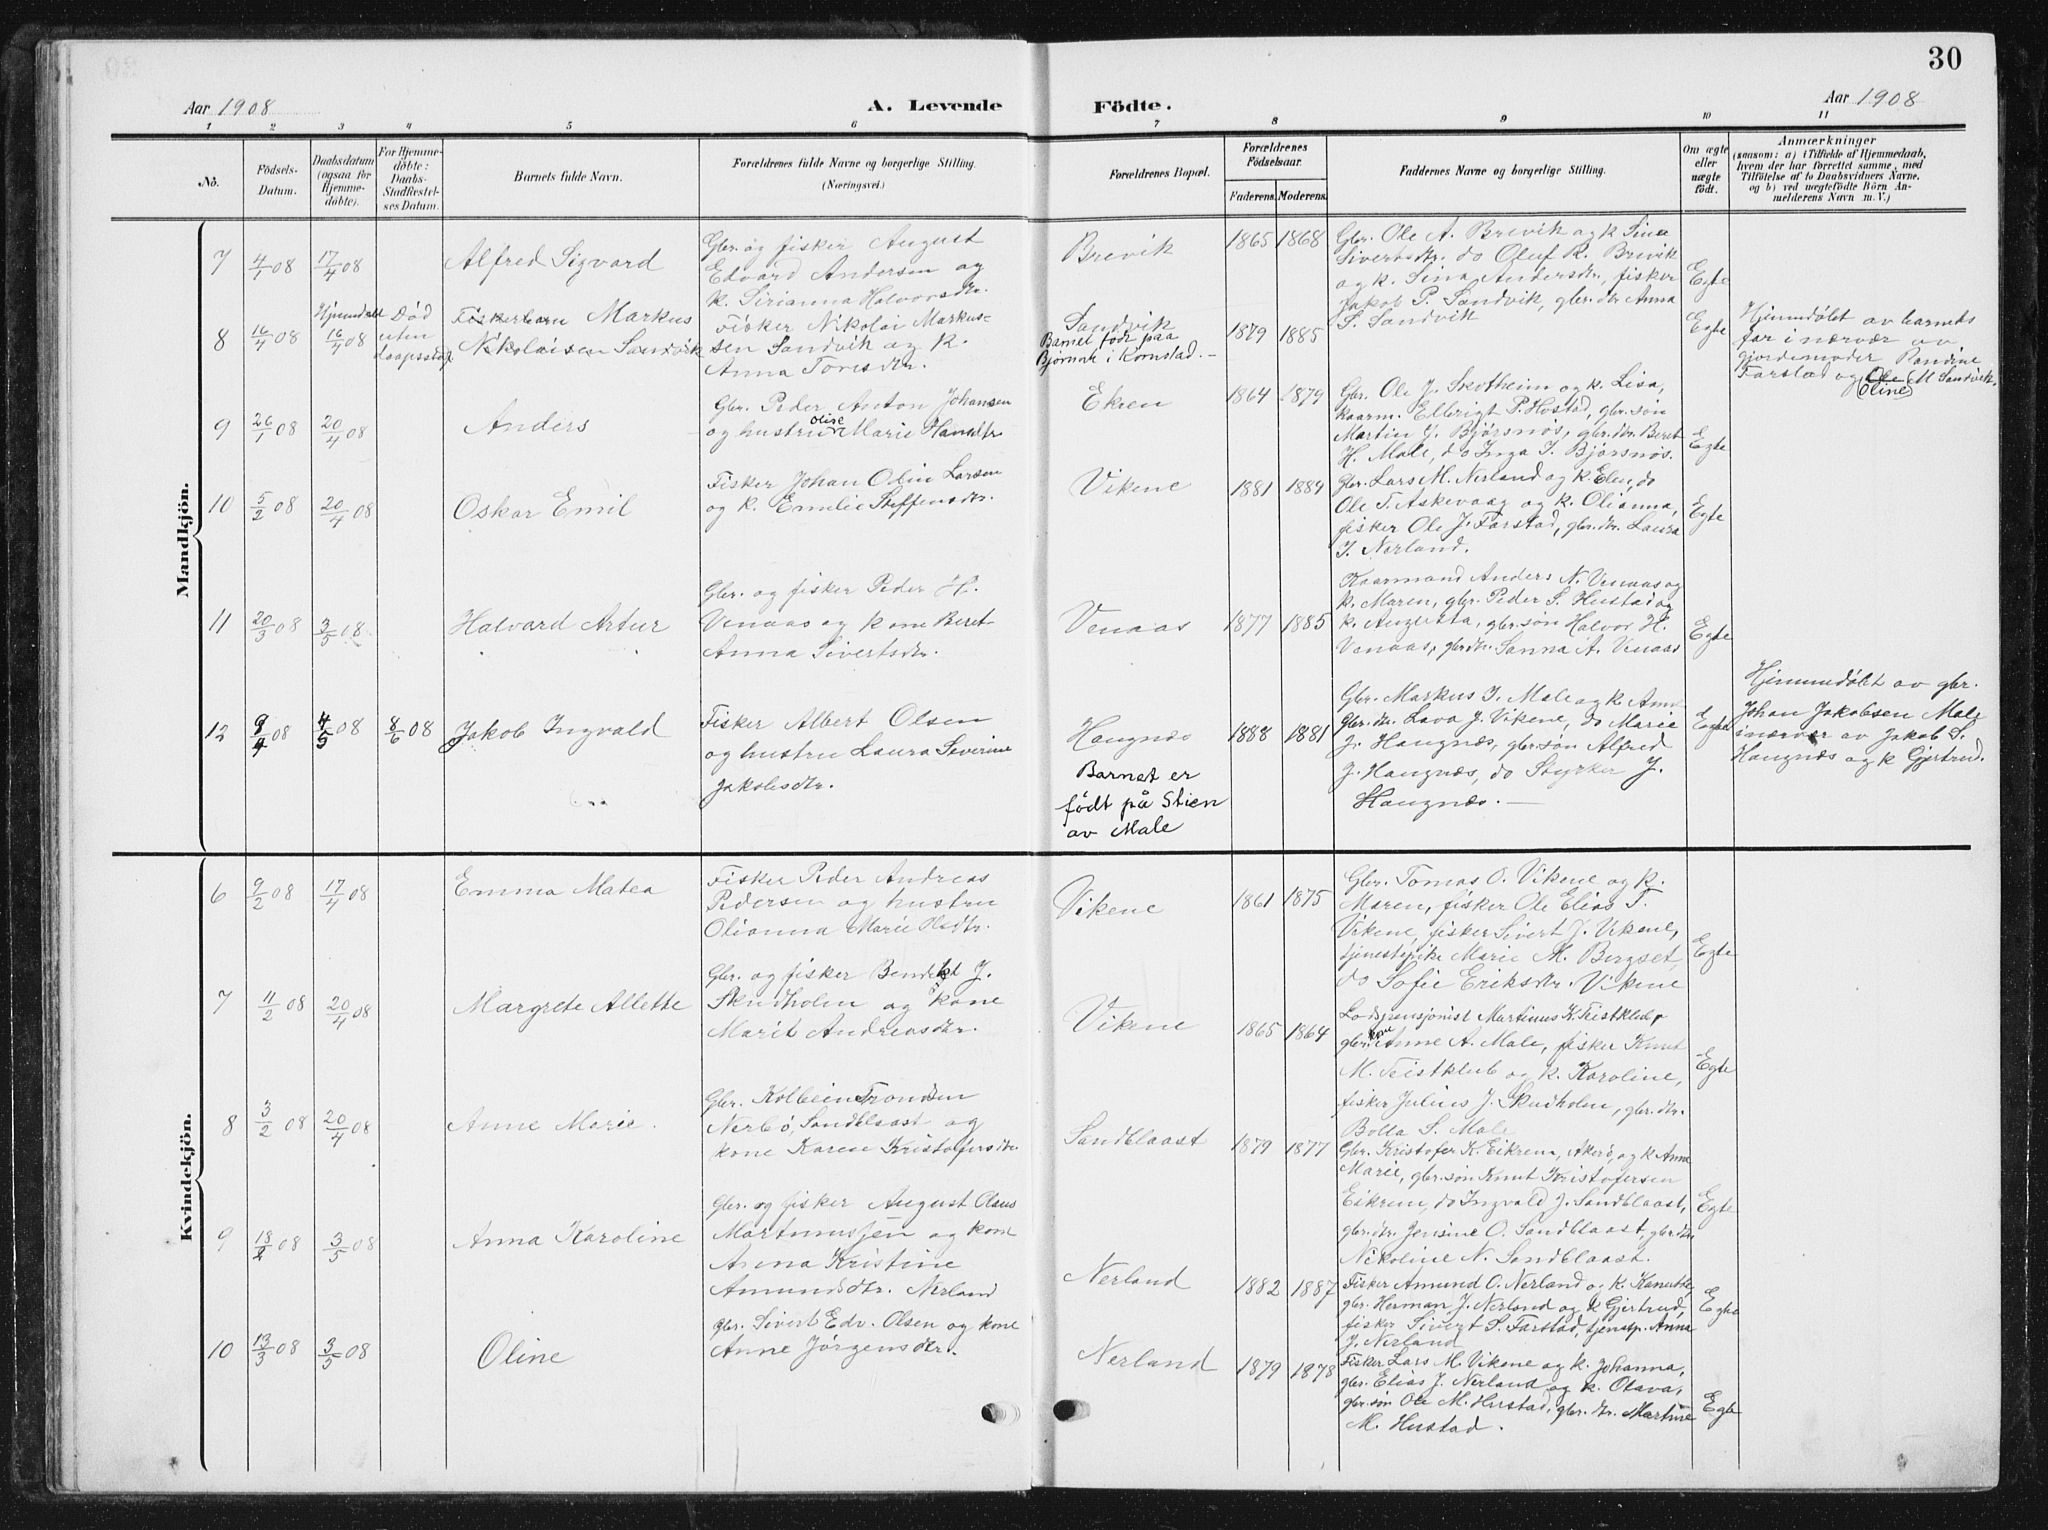 30
Aar 1908
A. Levende
Födte.
Aar 1908
1 2 3 4 5 6 7 8 9 10 11
No.
Födsels-
Datum.
Daabsdatum
(ogsaa for
Hjemme-
döbte).
For Hjemme-
döbte:
Daabs-
Stadfæstel-
ses Datum.
Barnets fulde Navn.
Forældrenes fulde Navne og borgerlige Stilling.
(Næringsvei.)
Forældrenes Bopæl.
Forældrenes
Födselsaar.
Faderens. Moderens.
Faddernes Navne og borgerlige Stilling.
Om ægte
eller
uægte
födt.
Anmærkninger
(saasom: a) i Tilfælde af Hjemmedaab,
hvem der har forrettet samme, med
Tilföielse af to Daabsvidners Navne,
og b) ved uægtefödte Börn An-
melderens Navn m. V.)
Mandkjön.
7 4/1 08 17/4 08 Alfred Sigvard
Gbr. og fisker August
Edvard Andersen og
k. Sirianna Halvorsdtr.
Brevik
1865 1868
Gbr. Ole A. Brevik og k Sina
Sivertsdtr. do Oluf R. Brevik
og k. Sina Andersdtr, fisker
Jakob P. Sandvik, gbr. dtr Anna
S. Sandvik
Egte
8 16/4 08 16/4 08
Død
uten
Fiskerbarn Markus
Nikolaisen Sandvik
Fisker Nikolai Markus-
sen Sandvik og k.
Anna Toresdtr.
Sandvik
Barnet født paa
Bjørnak i Kornstad. -
1879 1885
Egte
Hjemmedøbt av barnets
far i nærvær av
gjordemoder Randine
Farstad og Ole M Sandvik.
Oline
9 26/1 08 20/4 08 Anders
Gbr. Peder Anton Johansen
og hustru Oline Marie Hansdtr
Ekren
1864 1879
Gbr. Ole J. Skotheim og k. Lisa,
kaarm. Ellingt P. Hostad, gbr. søn
Martin J. Bjørsnøs, gbr. dtr. Beret
H. Male, do Inga J. Bjørsnøs.
Egte
10 5/2 08 20/4 08 Oskar Emil
Fisker Johan Odin Larsen
og k. Emilie Steffensdtr.
Vikene
1881 1884
Gbr. Lars M. Nerland og k. Elen, do
Ole T. Askevaag og k. Olianna,
fisker Ole J. Farstad, gbr. dtr. Laura
J. Nerland.
Egte
11 20/3 08 3/5 08 Halvard Artur
Gbr. og fisker Peder H.
Venaas og kone Beret
Anna Sivertsdtr.
Venaas
1877 1885
Kaarmand Anders N. Venaas og
k. Maren, gbr. Peder S. Hustad og
k. Augusta, gbr. søn Halvor H.
Venaas, gbr. dtr. Sanna A. Venaas
Egte
12 9/4 08 4/5 08 8/6 08 Jakob Ingvald
Fisker Albert Olsen
og hustru Laura Severine
Jakobsdtr.
Haugnæs
Barnet er
født på Stien
av Male
1888 1881
Gbr. Markus J. Male og k. Ann
gbr. dtr. Lava J. Vikene, do Marie
J. Haugnæs, gbr. søn Alfred
J. Haugnæs, do Styrker J.
Haugnæs. -
Egte
Hjemmedøbt av gbr.
Johan Jakobsen Male
i nærvær av Jakob S.
Haugnæs og k Gjertrud.
Kvindekjön.
6 9/2 08 17/4 08 Emma Matea
Fisker Peder Andreas
Pedersen og hustru
Olianna Marie
Vikene
1861 1875
Gbr. Tomas O. Vikene og k.
Maren, fisker Ole Elias T.
Vikene, fisker Sivert J. Vikene,
tjenestepike Marie M. Bergset,
do Sofie Eriksdtr. Vikene
Egte
7 11/2 08 20/4 08 Margrete Allette
Gbr. og fisker Bendikt J.
Skudholm og kone
Marit Andreasdtr.
Vikene
1865 1864
Lodspensjonist Martinus K. Teistklub,
gbr. kone Anne A. Male, fisker Knut
M. Teistklub og k. Karoline,
fisker Julius J. Skudholm, gbr. dtr.
Bolla S. Male
Egte
8 3/2 08 20/4 08 Anne Marie.
Gbr. Kolbein Trondsen
Nerbø, Sandblaast og
kone Karen Kristofersdtr
Sandblaast
1879 1877
Gbr. Kristofer K. Eikrem, Akerø, og k Anne
Marie, gbr. søn Knut Kristofersen
Eikrem, do Ingvald J. Sandblaast,
gbr. dtr. Jensine O. Sandblaast, gbr. dtr
Nikoline N. Sandblaast.
Egte
9 13/2 08 3/5 08 Anna Karoline
Gbr. og fisker August Olaus
Martinussen og kone
Anna Kristine
Amundsdtr. Nerland
Nerland
1882 1887
Fisker Amund O. Nerland og k.
gbr. Herman J. Nerland og k Gjertrud,
fisker Sivert S. Farstad, tjenstp. Anna
J. Nerland
Egte
10 13/3 08 3/5 08 Oline
Gbr. Sivert Edv. Olsen og kone
Anne Jørgensdtr.
Nerland
1879 1878
Fisker Lars M. Vikene og k. Johanna,
gbr. Elias J. Nerland og k. Olava,
gbr. søn Ole M. Hustad, gbr. dtr. Martine
M. Hustad.
Egte